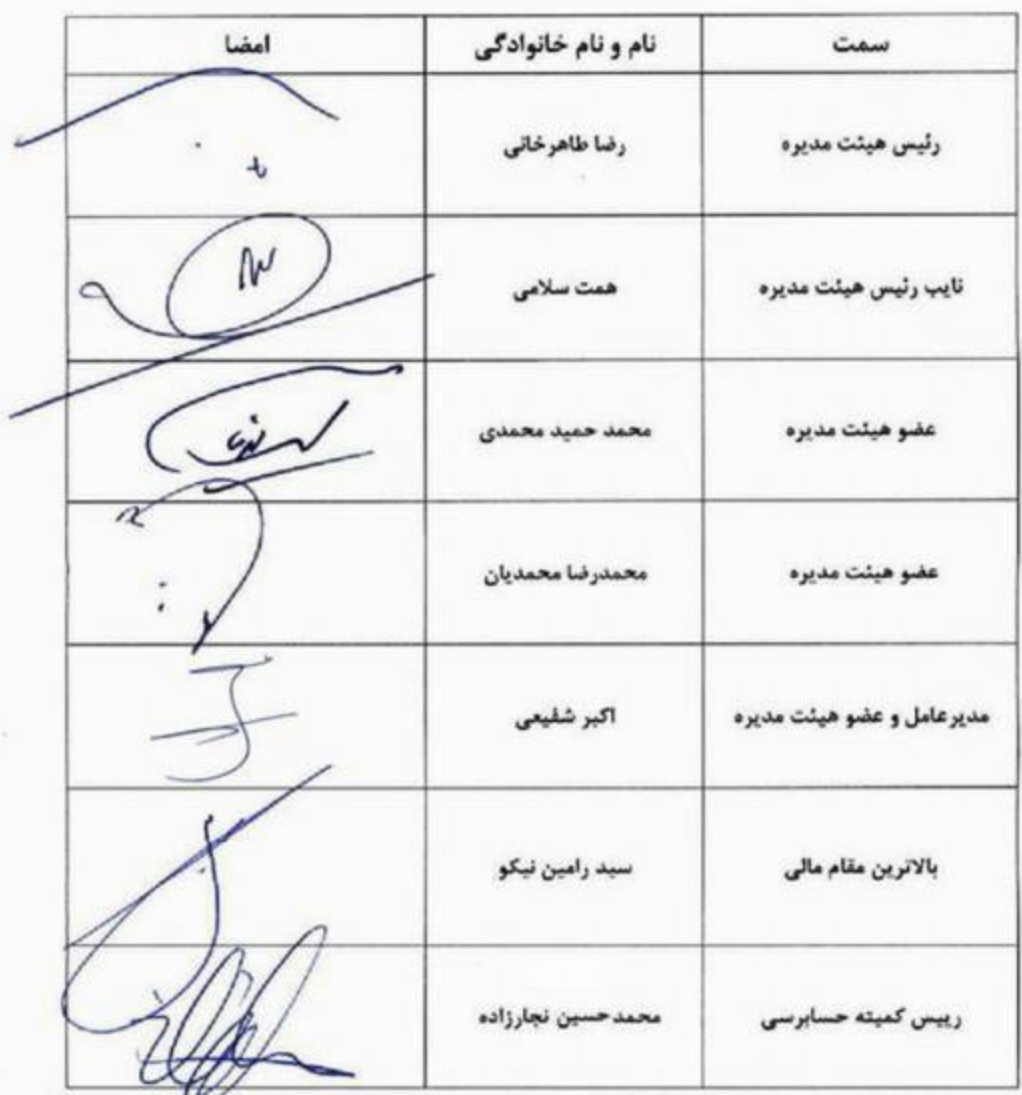 سمت نام و نام خانوادگی امضا
رئیس هیئت مدیره رضا طاهرخانی
نایب رئیس هیئت مدیره همت سلامی
عضو هیئت مدیره محمد حمید محمدی
عضو هیئت مدیره محمدرضا محمدیان
مدیرعامل و عضو هیئت مدیره اکبر شفیعی
بالاترین مقام مالی سید رامین نیکو
رییس کمیته حسابرسی محمدحسین نجارزاده